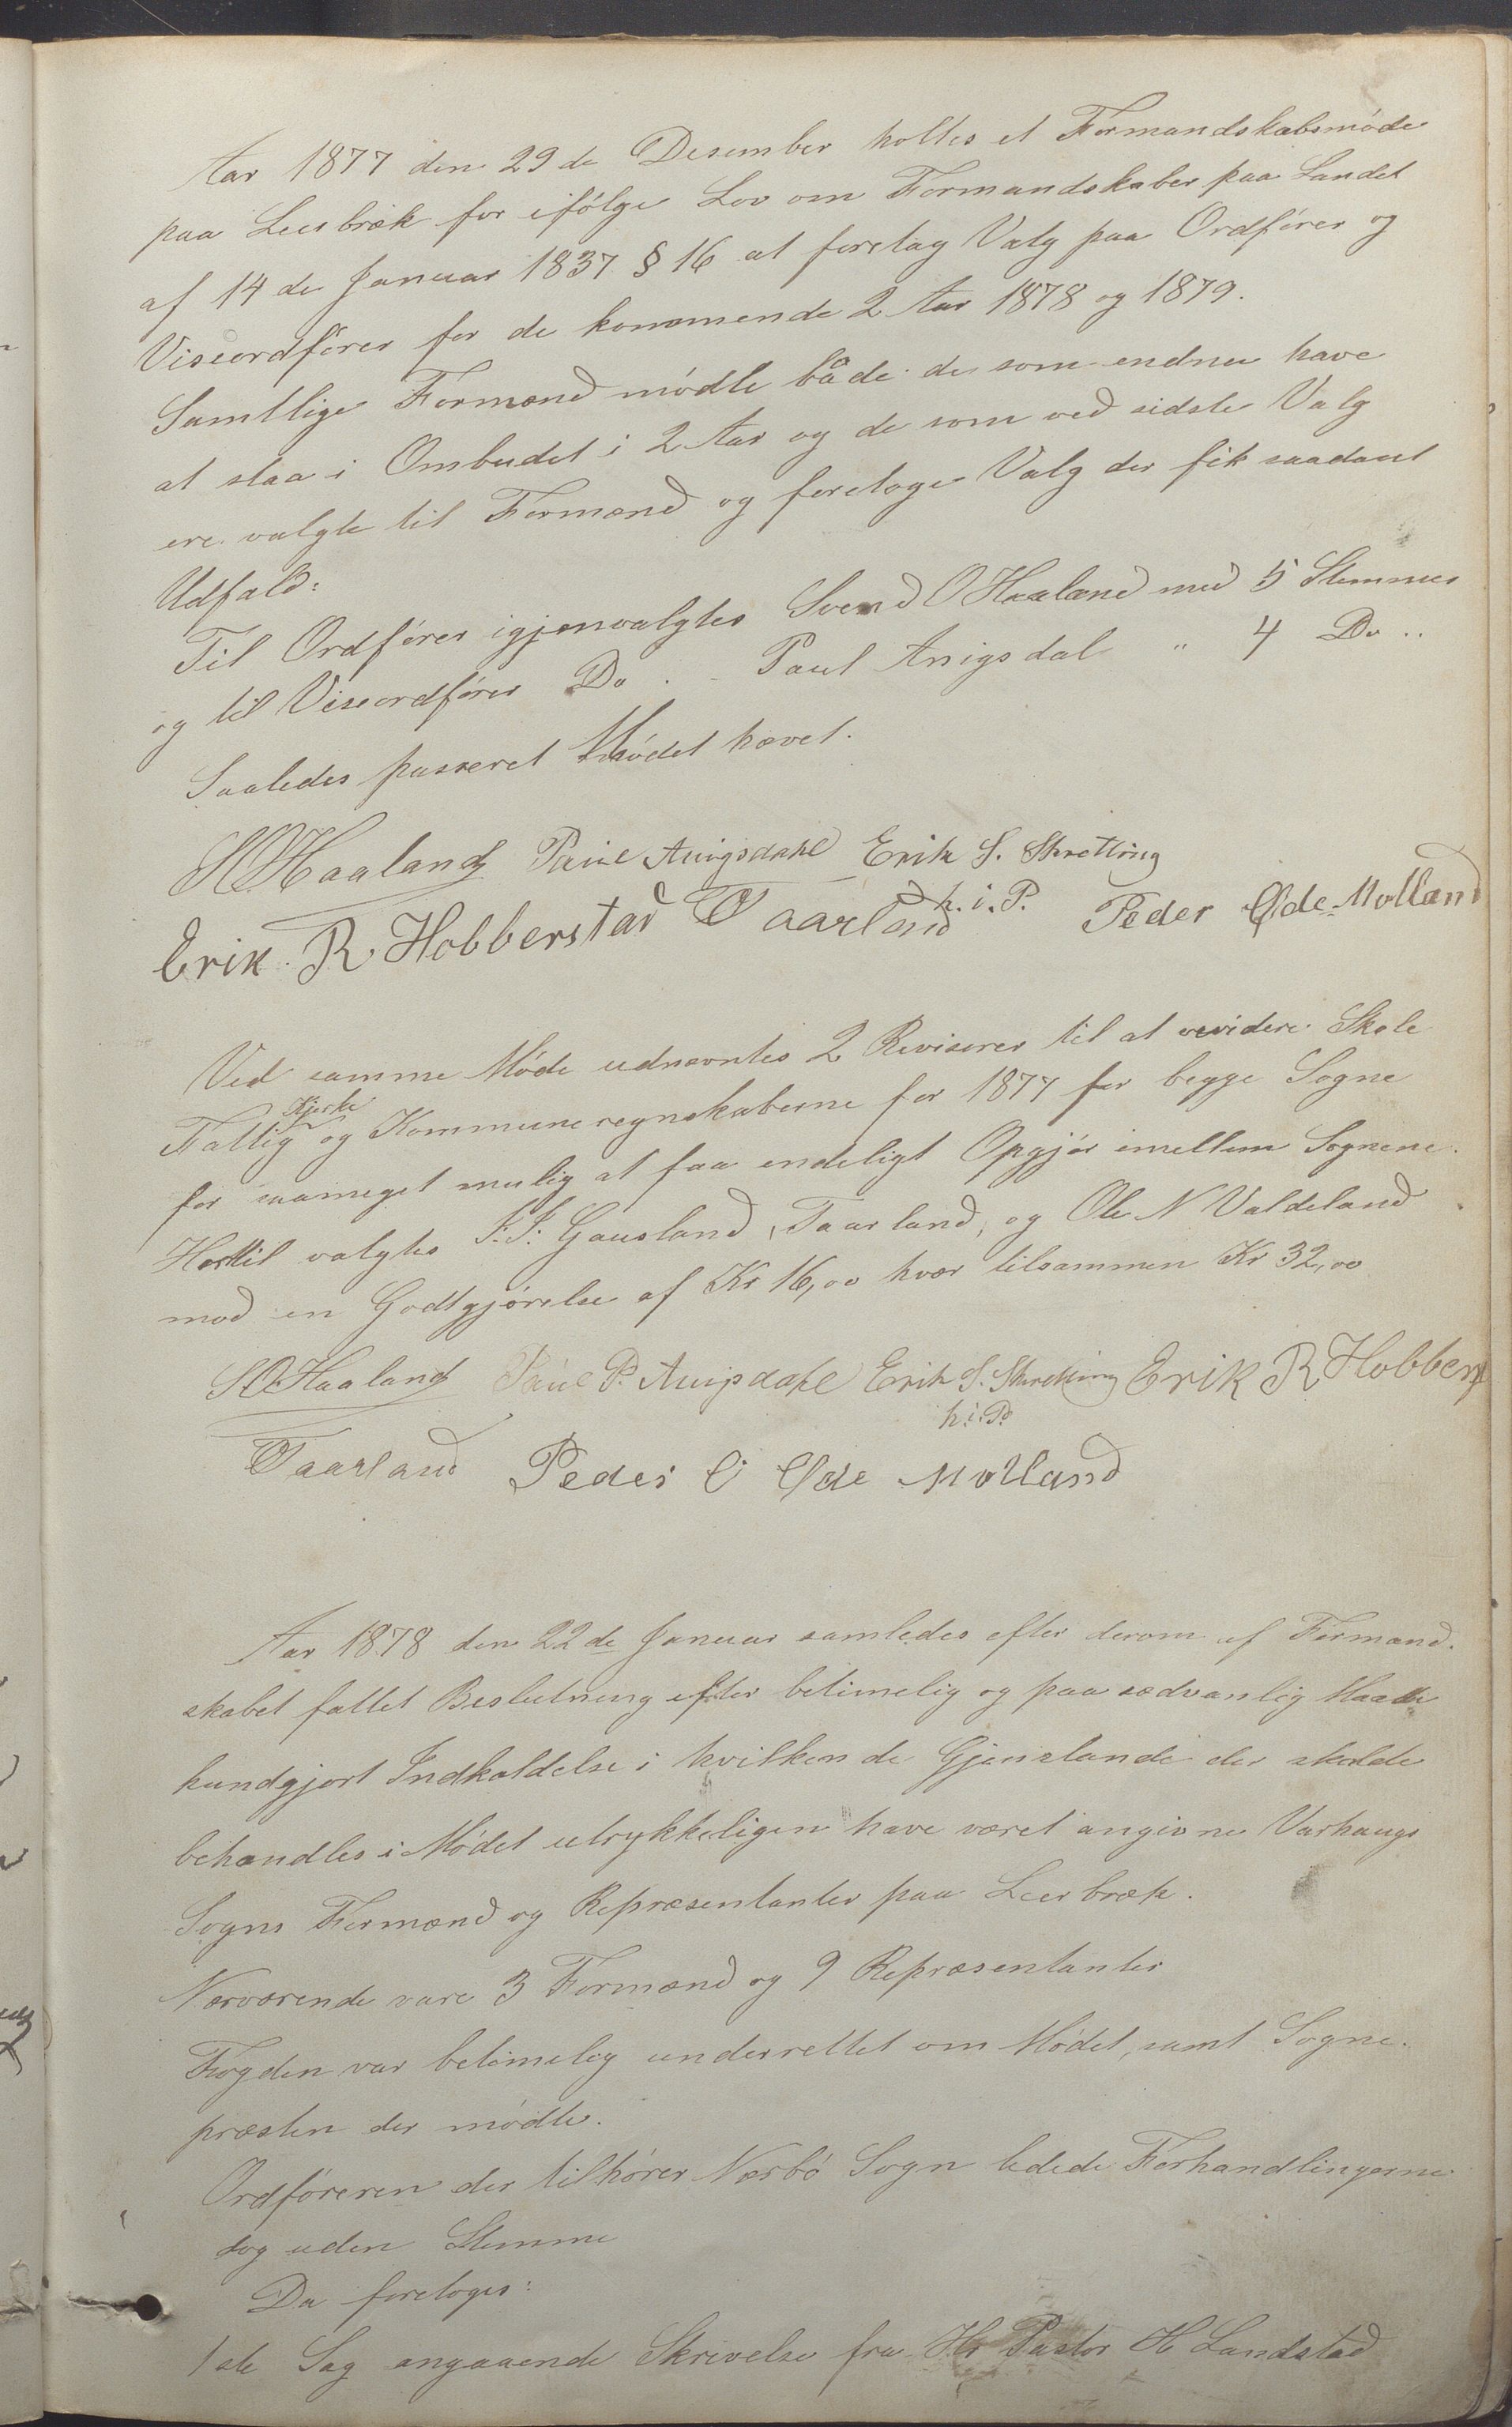 Aar 1877 den 29de Desember holtes et Formandskabsmöde
paa Leerbræk for ifölge Lov om Formandskaber paa Landet
af 14de Januar 1837 § 16 at foretag Valg paa Ordförer og
Viseordförer for de kommende 2 Aar 1878 og 1879.
Samtlige Formænd mödte både de som endnu have
at staa i Ombudet i 2 Aar og de som ved sidste Valg
ere valgte til Formænd og foretoges Valg der fik saadant
Udfald:
Til Ordförer igjenvalgtes Svend O Haaland med 5 Stemmer
og til Viseordförer Do . - Paul Anigsdal " 4 Do ..
Saaledes passeret Mödet hævet.
S O Haaland Paul Auigsdahl Erik S. Skretting
h. i. P.
Erik R Hobberstad O Taarland Peder Olde Motland
Ved samme Möde udnævntes 2 Revisorer til at revidere Skole
Kjerke
Fattig og Kommuneregnskaberne for 1877 for begge Sogne
for saameget mulig at faa endeligt Opgjör imellem Sognene.
Hertil valgtes S. S. Gausland, Taarland, og Ole N Valdeland
mod en Godtgjörelse af Kr 16,00 hver tilsammen Kr 32,00
S O Haaland Paul P. Auigsdahl Erik S. Skretting Erik R Hobberst
h. i. P.
O Taarland Peder O Olde Motland
Aar 1878 den 22de Januar samledes efter derom af Formand-
skabet fattet Beslutning efter betimelig og paa sædvanlig Maade
kundgjort Indkaldelse i hvilken de Gjenstande der skulde
behandles i Mödet utrykkeligen have været angivne Varhaugs
Sogns Formænd og Repræsentanter paa Leerbræk.
Nærværende vare 3 Formænd og 9 Repræsentanter
Fogden var betimelig underrettet om Mödet, samt Sogne-
præsten der mödte.
Ordföreren der tilhörer Nærbö Sogn ledede Forhandlingerne
dog uden Stemme
Da foretoges:
1ste Sag angaaende Skrivelse fra Hr Pastor H Landstad